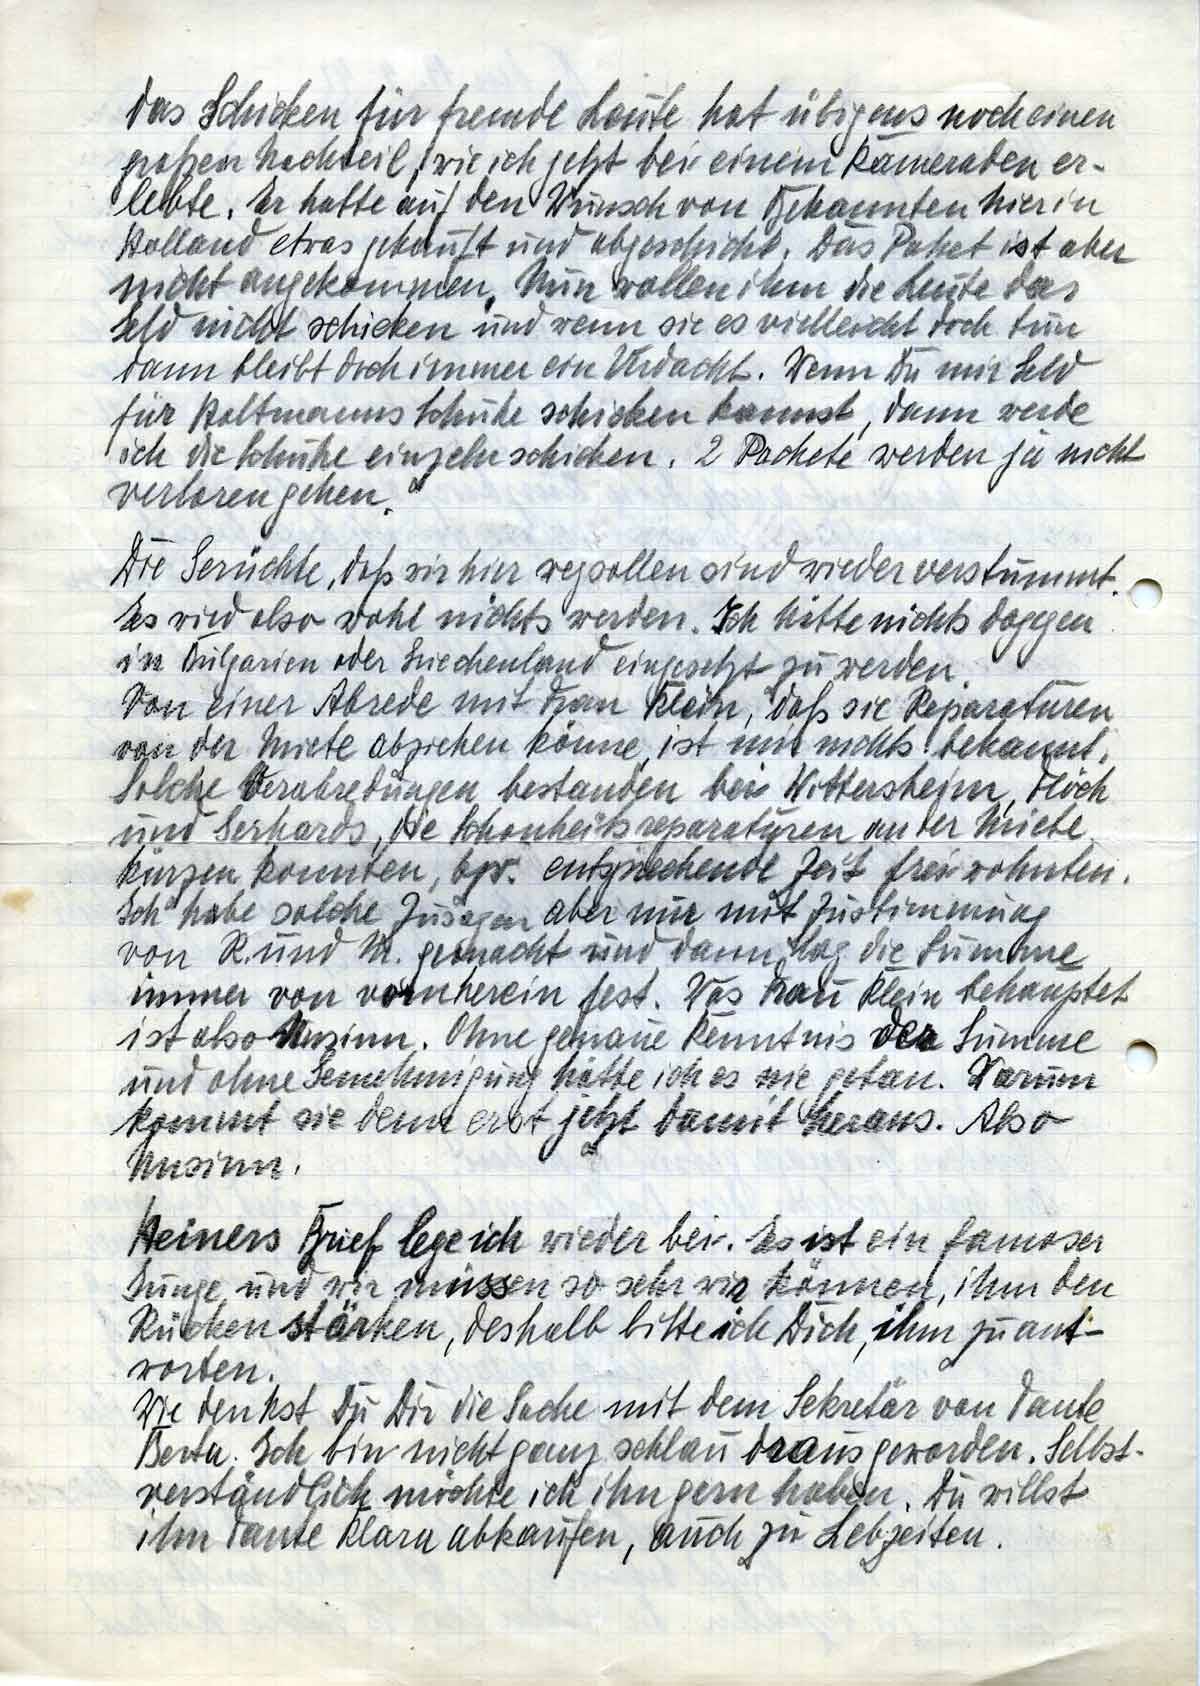 Das Schicken für fremde Leute hat übigens noch einen
großen Nachteil, wie ich jetzt bei einem Kameraden er-
lebte. Er hatte auf den Wunsch von Bekannten hier in
Holland etwas gekauft und abgeschickt. Das Paket ist aber
nicht angekommen. Nun wollen ihm die Leute das
Geld nicht schicken und wenn sie es vielleicht doch tun
dann bleibt doch immer ein Verdacht. Wenn Du mir Geld
für Holtmanns Schuhe schicken kannst, dann werde
ich die Schuhe einzeln schicken. 2 Packete werden ja nicht
verloren gehen.
Die Gerüchte, daß wir hier wegsollen sind wieder verstummt.
Es wird also wohl nichts werden. Ich hätte nichts dagegen
in Bulgarien oder Griechenland eingesetzt zu werden.
Von einer Abrede mit Frau Klein, daß sie Reparaturen
von der Miete abziehen könne, ist mir nichts bekannt.
Solche Verabredungen bestanden bei Wittersheim, Flöck
und Gerhards, die Schönheitsreparaturen an der Miete
kürzen konnten, bzw. entsprechende Zeit frei wohnten.
Ich habe solche Zusagen aber nur mit Zustimmung
von R. und M. gemacht und dann lag die Summe
immer von vornherein fest. Was Frau Klein behauptet
ist also Unsinn. Ohne genaue Kenntnis der Summe
und ohne Genehmigung hätte ich es nie getan. Warum
kommt sie denn erst jetzt damit heraus. Also
Unsinn.
Heiners Brief lege ich wieder bei. Es ist ein famoser
Junge und wir müssen so sehr wir können, ihm den
Rücken stärken, deshalb bitte ich Dich, ihm zu ant-
worten.
Wie denkst Du Dir die Sache mit dem Sekretär von Tante
Berta. Ich bin nicht ganz schlau draus geworden. Selbst-
verständlich möchte ich ihn gern haben. Du willst
ihn Tante Klara abkaufen, auch zu Lebzeiten.